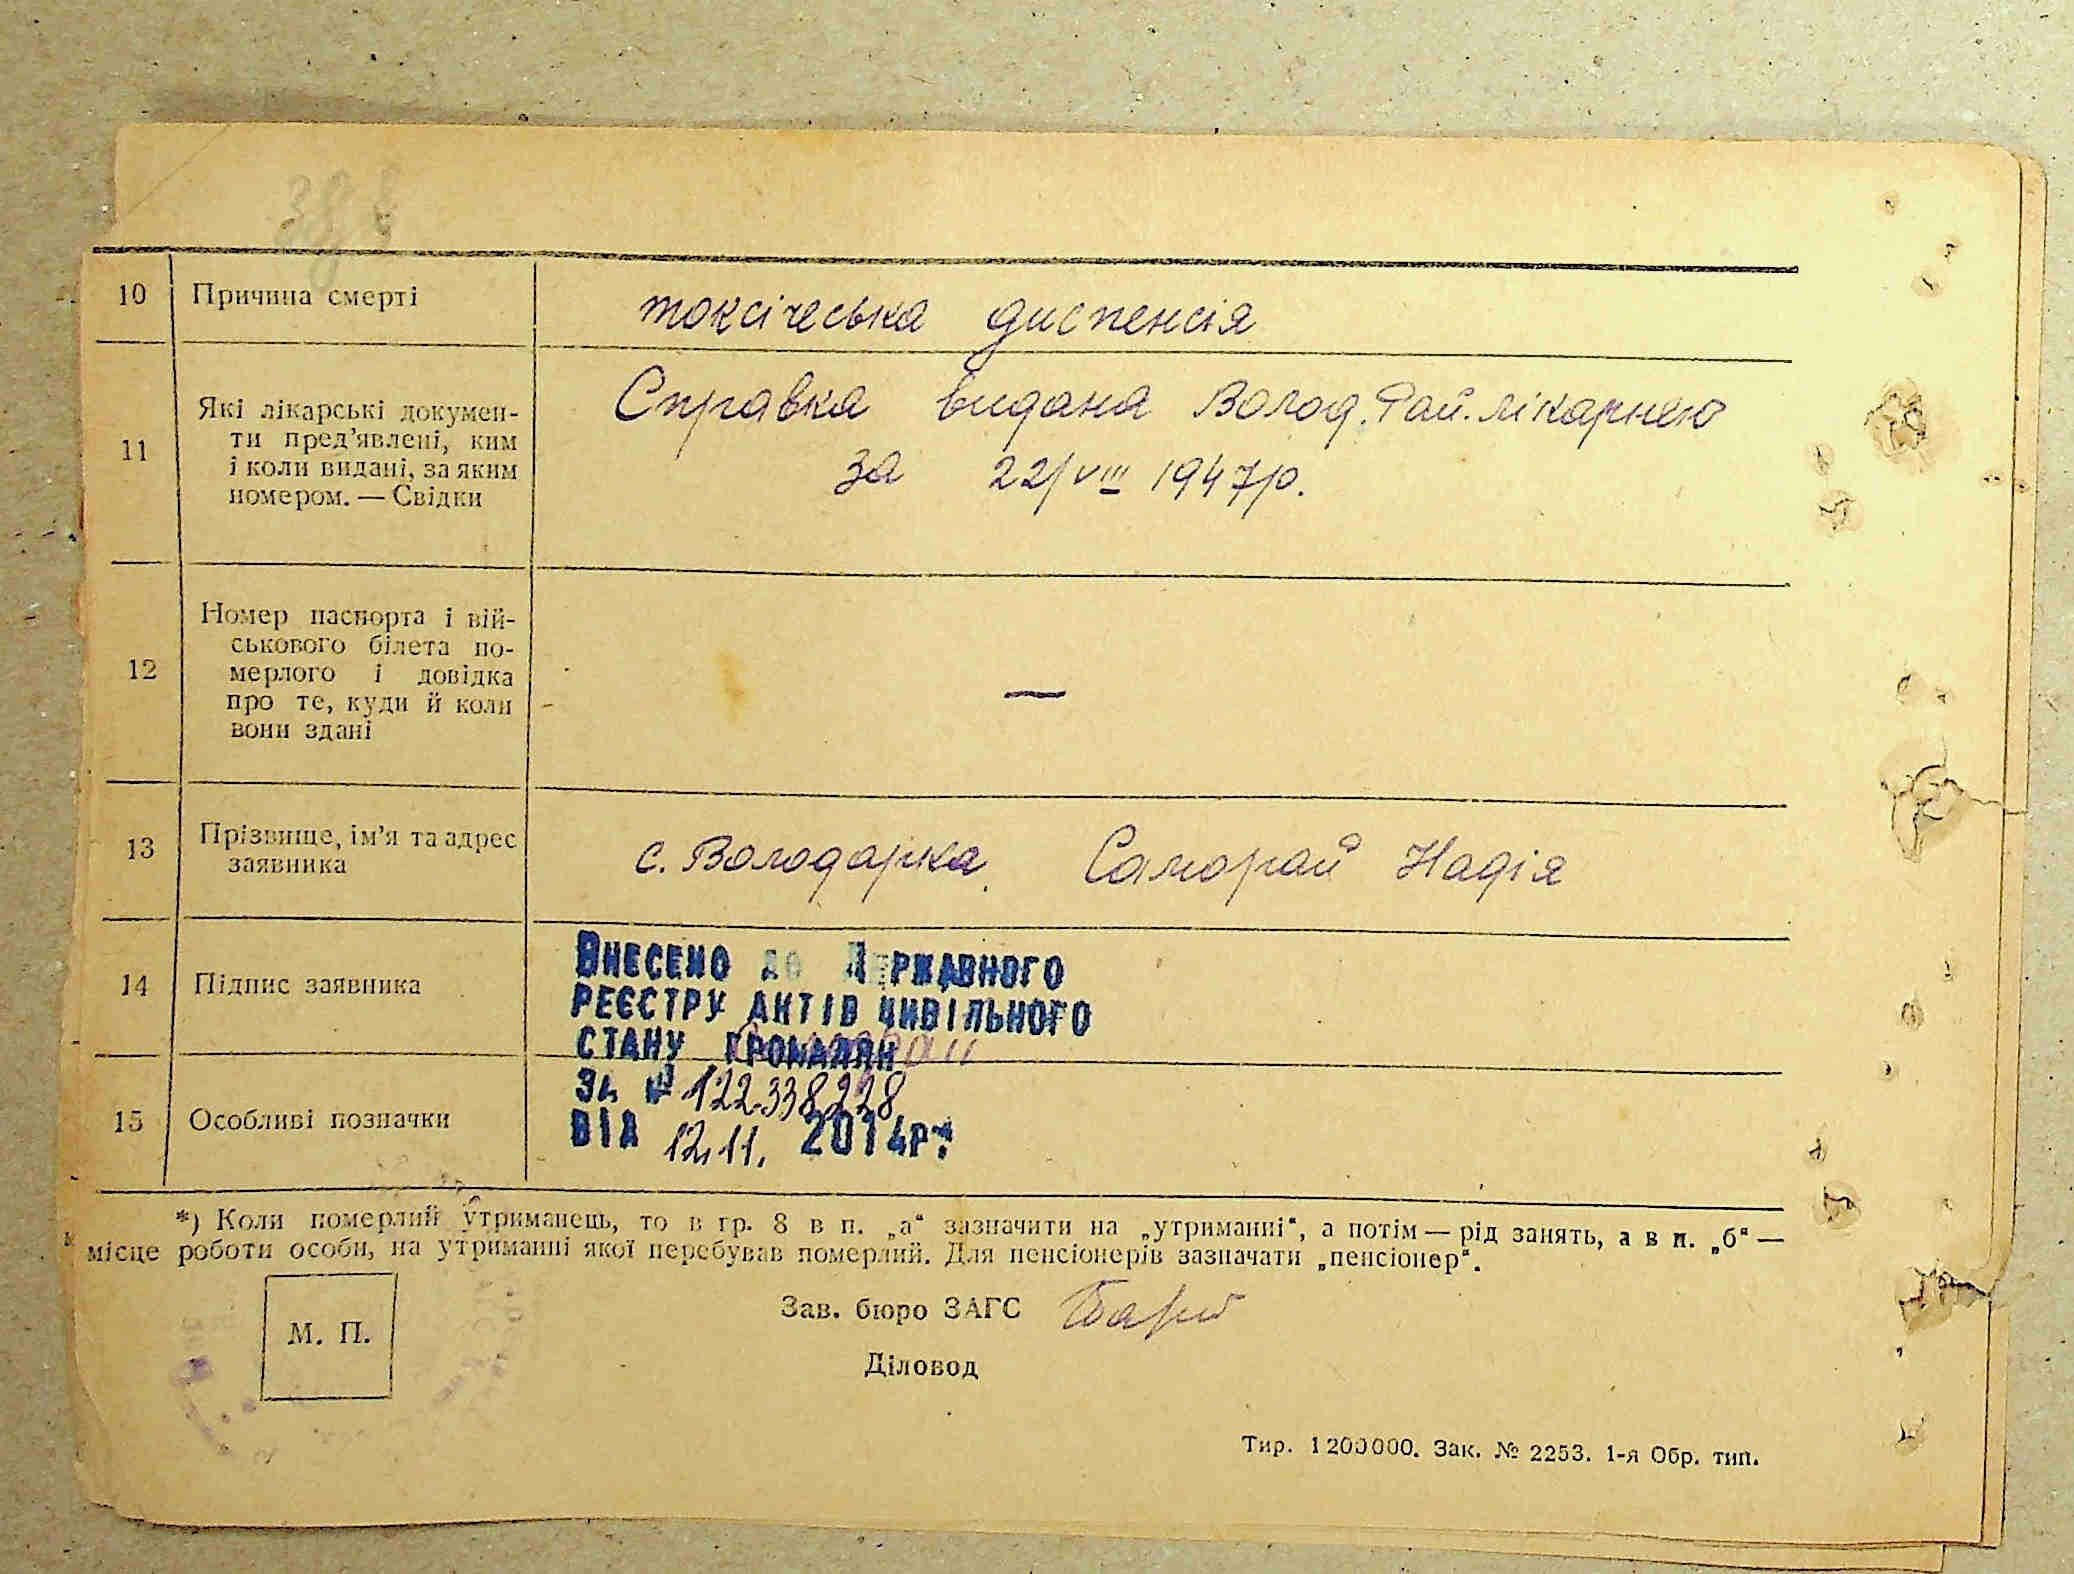 10 Причина смерті токсічеська диспенсія
11 Які лікарські докумен-
ти пред'явлені, ким
і коли видані, за яким
номером. — Свідки
Справка видана Волод. Рай. лікарнею
за 22/VIII 1947р.
12 Номер паспорта і вій-
ськового білета по-
мерлого і довідка
про те, куди й коли
вони здані
—
13 Прізвище, ім'я та адрес
заявника
с. Володарка. Саморай Надія
14 Підпис заявника
ВНЕСЕНО ДО ДЕРЖАВНОГО
РЕЄСТРУ АКТІВ ЦИВІЛЬНОГО
СТАНУ ГРОМАДЯН
ЗА № 122338228
15 Особливі позначки
ВІД 12.11. 2014р.
*) Коли померлий утриманець, то в гр. 8 в п. „а“ зазначити на „утриманні“, а потім — рід занять, а в п. „б“ —
місце роботи особи, на утриманні якої перебував померлий. Для пенсіонерів зазначати „пенсіонер“.
Зав. бюро ЗАГС
М. П.
Діловод
Тир. 1200000. Зак. № 2253. 1-я Обр. тип.